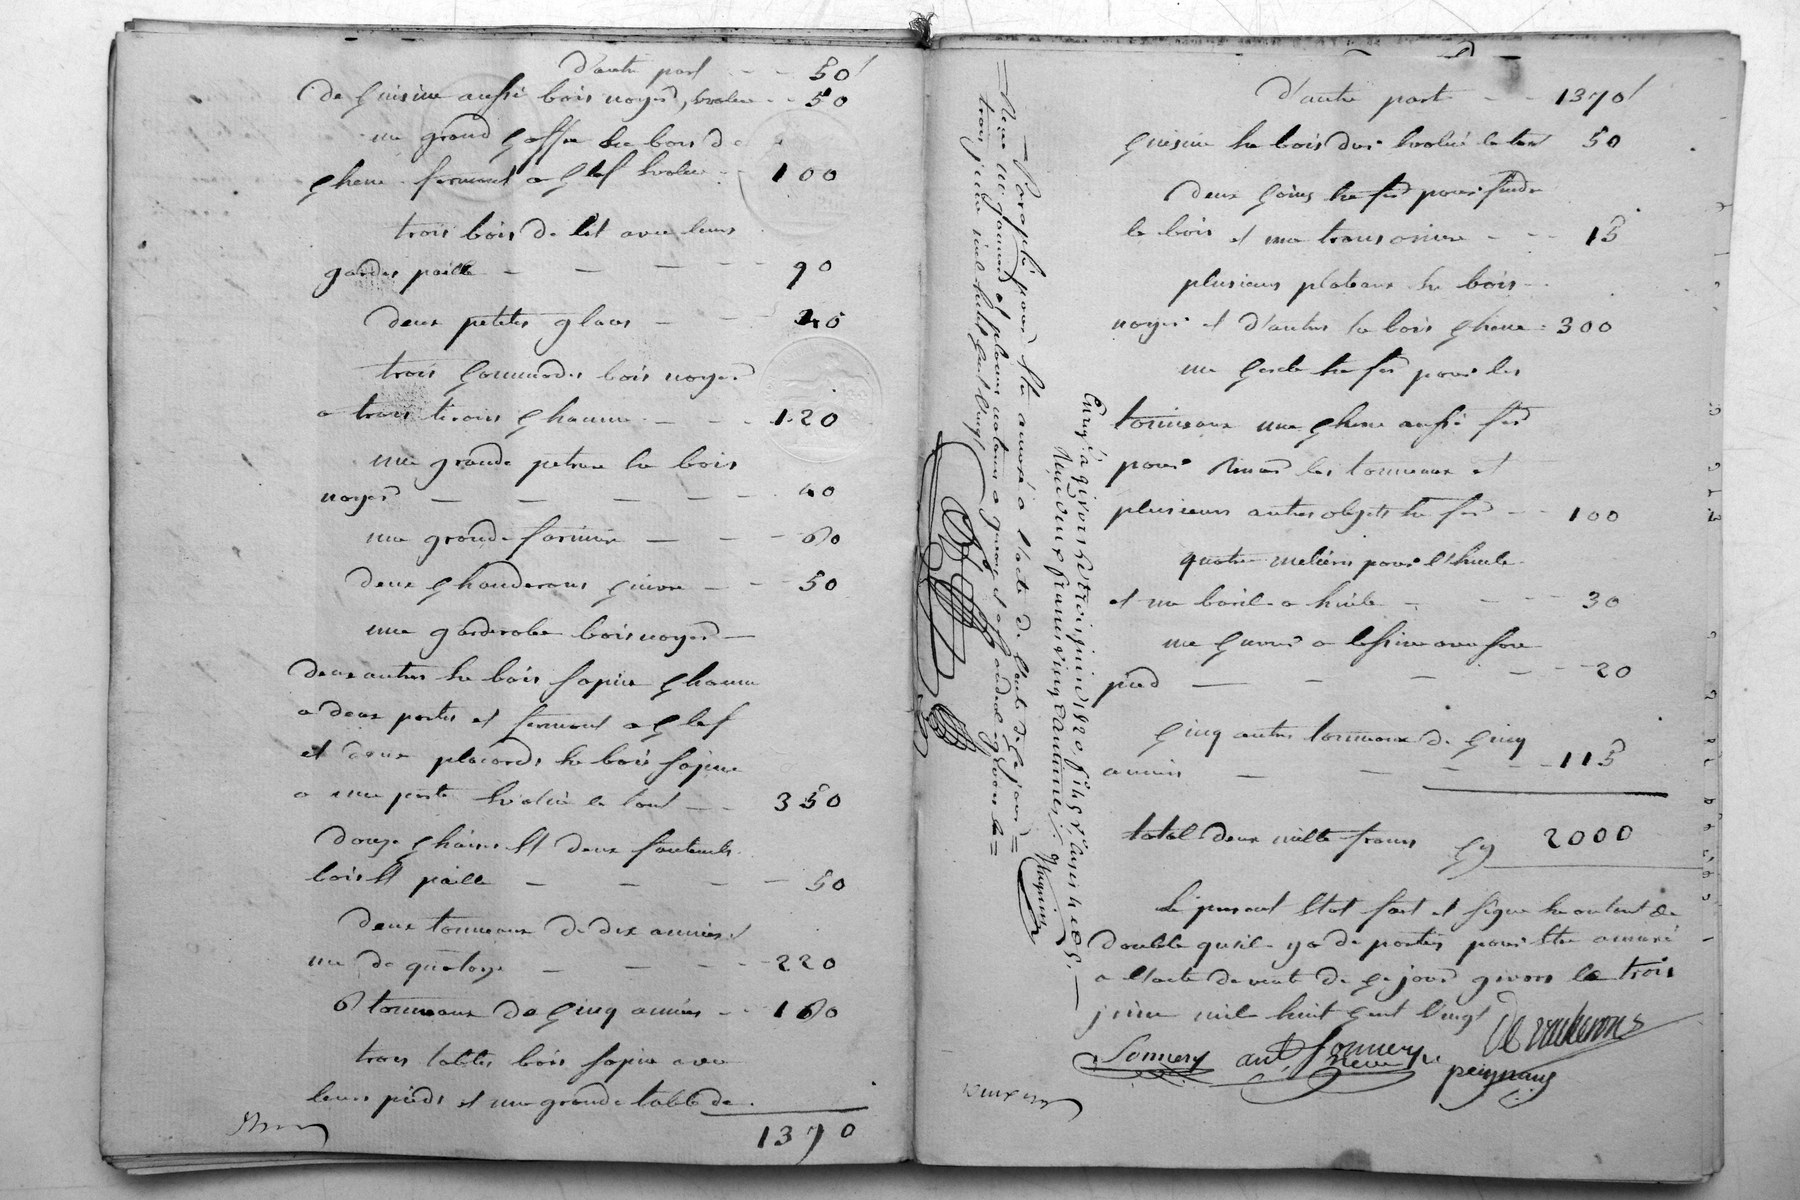 d'autre part - - 50
de cuisine aussi bois noyer, évalué - - 50
un grand coffre de bois de
chene fermant a clef évalué - - 100
trois bois de lit avec leurs
gardes paille - - - - 90
deux petites glaces - - - 40
trois commodes bois noyer
a trois tiroirs chacune - - - 120
une grande petrane de bois
noyer - - - - - - 40
une grande farinière - - - 60
deux chauderons cuivre - - - 50
une garderobe bois noyer -
deux autres de bois sapin chacune
a deux portes et fermant a clef
et deux placards de bois sapin
a une porte évalué le tout - - 350
douze chaises et deux fauteuils
bois et paille - - - - 50
deux tonneaux de dix années et
un de quatorze - - - - 220
6 tonneaux de cinq années - - 160
trois tables bois sapin avec
leurs pieds et une grande table de
1370
d'autre part - - 1370
cuisine de bois dur évalué le tout 50
deux coins de fer pour fendre
le bois et une - - - 15
plusieurs plateaux de bois -
noyer et d'autres de bois chene - 300
un cercle de fer pour les
tonneaux une chene aussi fer
pour les tonneaux et
plusieurs autres objets de fer - - 100
quatre pour l'huile
et un baril a huile - - - - 30
un cuvier a lessive avec son
pied - - - - - 20
cinq autres tonneaux de cinq
années - - - - 115
total deux mille francs cy 2000
Le present Etat fait et signé en autant de
double qu'il y a de parties pour être annexé
a l'acte de vente de ce jour givors le trois
juin mil huit cent vingt
Sonnery ant. Sonnery
peyrard
Paraphé pour être annexé à l'acte de vente de ce jour =
= Reçu et
trois juin mil huit cent vingt
Enrg.é à givors le trois juin 1820, f.º 145
Reçu deux francs vingt centimes